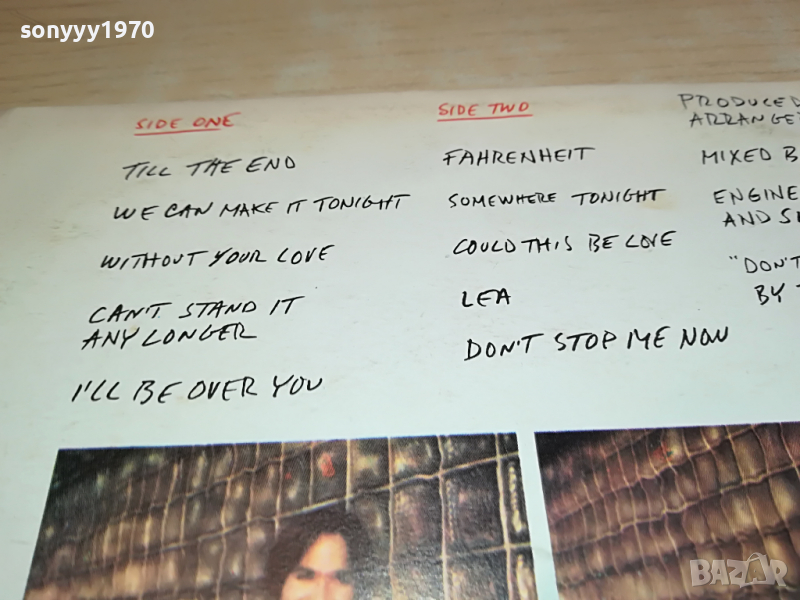 sonyyy1970
SIDE ONE
TILL THE END
WE CAN MAKE IT TONIGHT
WITHOUT YOUR LOVE
CAN'T STAND IT
ANY LONGER
I'LL BE OVER YOU
SIDE TWO
FAHRENHEIT
SOMEWHERE TONIGHT
COULD THIS BE LOVE
LEA
DON'T STOP ME NOW
PRODUCED
ARRANGE
MIXED B
ENGINE
AND S
"DON'T
BY
BAZAR